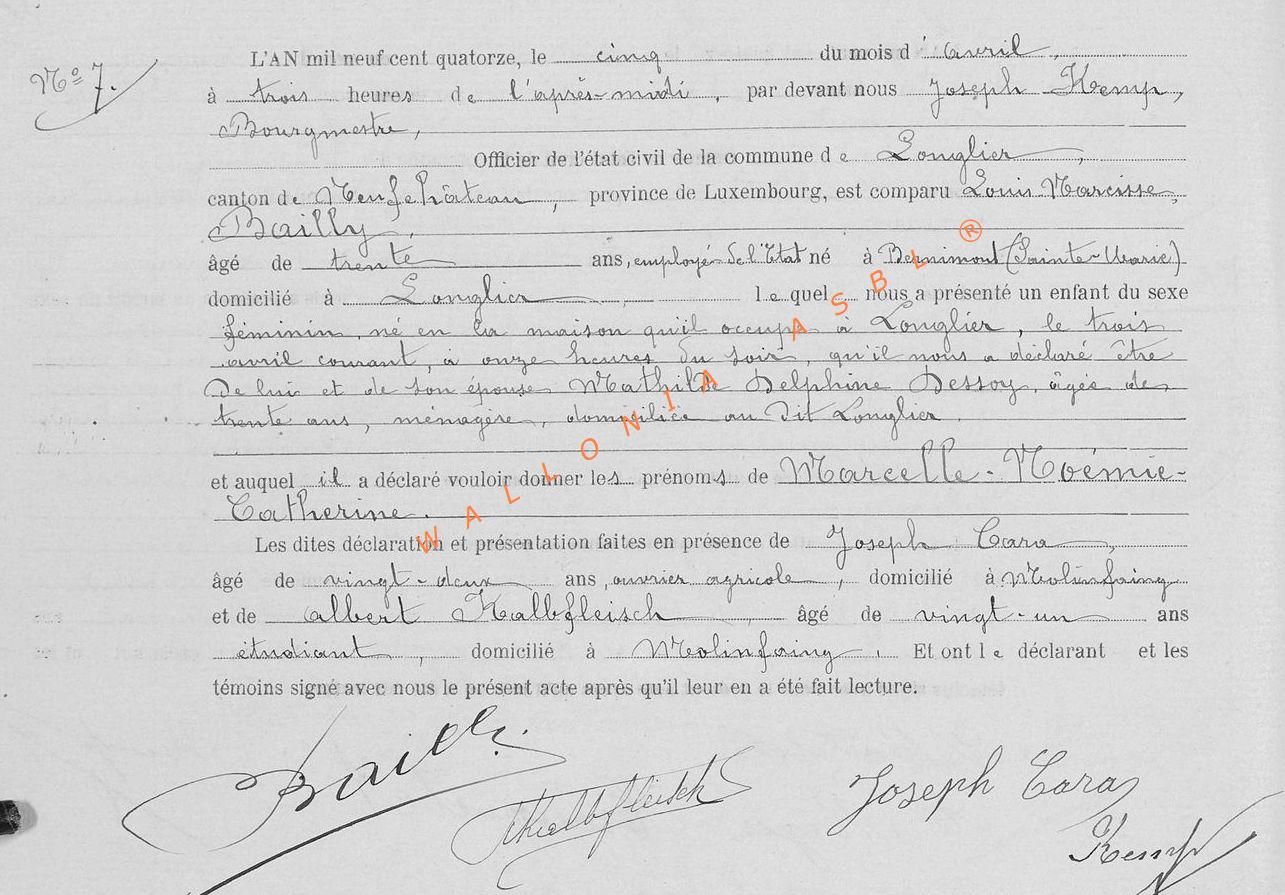 Nº 7.
L'AN mil neuf cent quatorze, le cinq du mois d'avril,
à trois heures de l'après-midi, par devant nous Joseph Kemp,
Bourgmestre,
Officier de l'état civil de la commune de Longlier,
canton de Neufchâteau, province de Luxembourg, est comparu Louis Narcisse
Bailly,
âgé de trente ans, employé de l'Etat né à Bernimont (Sainte-Marie)
domicilié à Longlier, lequel nous a présenté un enfant du sexe
féminin, né en la maison qu'il occupe à Longlier, le trois
avril courant, à onze heures du soir, qu'il nous a déclaré être
de lui et de son épouse Mathilde Delphine Dessoy, âgée de
trente ans, ménagère, domiciliée au dit Longlier.
et auquel il a déclaré vouloir donner les prénoms de Marcelle-Noémie-
Catherine.
Les dites déclaration et présentation faites en présence de Joseph Cara,
âgé de vingt-deux ans, ouvrier agricole, domicilié à Molinfaing
et de Albert Kalbfleisch, âgé de vingt-un ans
étudiant, domicilié à Molinfaing. Et ont le déclarant et les
témoins signé avec nous le présent acte après qu'il leur en a été fait lecture.
Bailly
Kalbfleisch
Joseph Cara
Kemp
WALLONIA ASBL ®